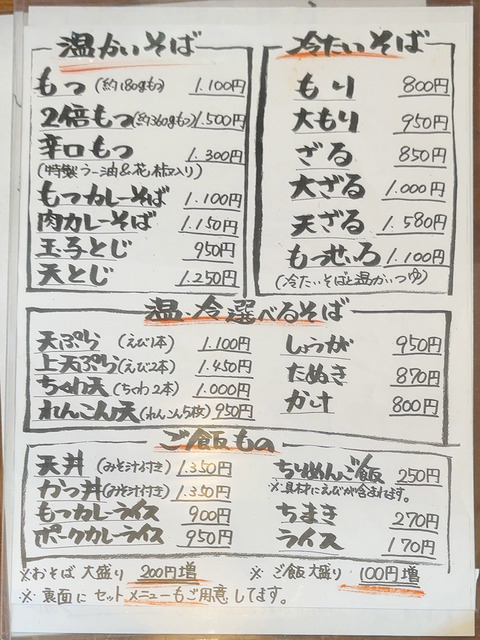 温かいそば
もつ(約180gもつ) 1.100円
2倍もつ(約360gもつ) 1.500円
辛口もつ 1.300円
(特製ラー油&花椒入り)
もつカレーそば 1.100円
肉カレーそば 1.150円
玉子とじ 950円
天とじ 1.250円
冷たいそば
もり 800円
大もり 950円
ざる 850円
大ざる 1.000円
天ざる 1.580円
もつせいろ 1.100円
(冷たいそばと温かいつゆ)
温・冷選べるそば
天ぷら (えび1本) 1.100円
上天ぷら(えび2本) 1.450円
ちくわ天 (ちくわ2本) 1.000円
れんこん天(れんこん5枚) 950円
しょうが 950円
たぬき 870円
かけ 800円
ご飯もの
天丼 (みそ汁付き) 1.350円
かつ丼(みそ汁付き) 1.350円
もつカレーライス 900円
ポークカレーライス 950円
ちりめんご飯 250円
※具材にえびが含まれます。
ちまき 270円
ライス 170円
※おそば大盛り 200円増
※ご飯大盛り 100円増
※裏面にセットメニューもご用意してます。